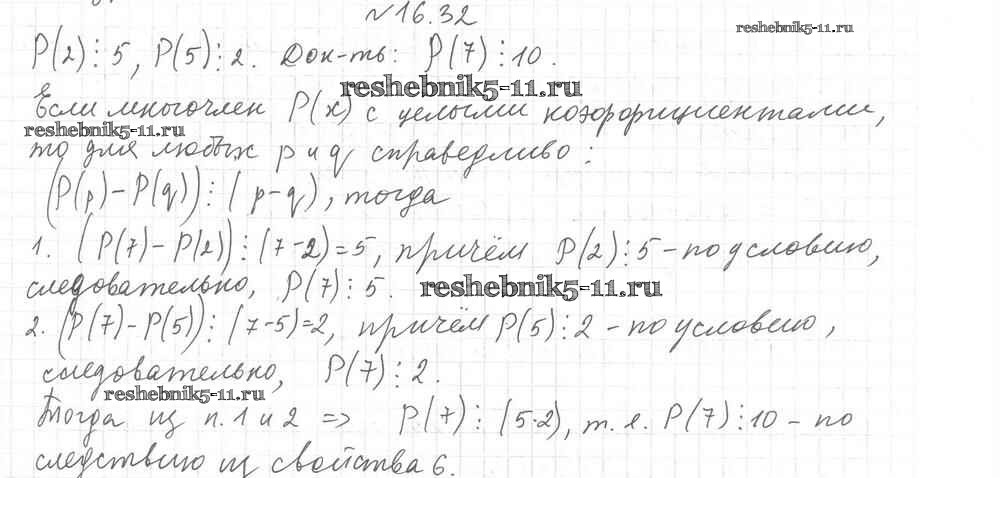 №16.32
reshebnik5-11.ru
P(2)⋮5, P(5)⋮2. Док-ть: P(7)⋮10.
reshebnik5-11.ru
Если многочлен P(x) с целыми коэффициентами,
reshebnik5-11.ru
то для любых p и q справедливо:
(P(p)-P(q))⋮(p-q), тогда
1. (P(7)-P(2))⋮(7-2)=5, причём P(2)⋮5-по условию,
следовательно, P(7)⋮5. reshebnik5-11.ru
2. (P(7)-P(5))⋮(7-5)=2, причём P(5)⋮2-по условию,
следовательно, P(7)⋮2.
reshebnik5-11.ru
Тогда из п.1 и 2 => P(7)⋮(5·2), т.е. P(7)⋮10 - по
следствию из свойства 6.